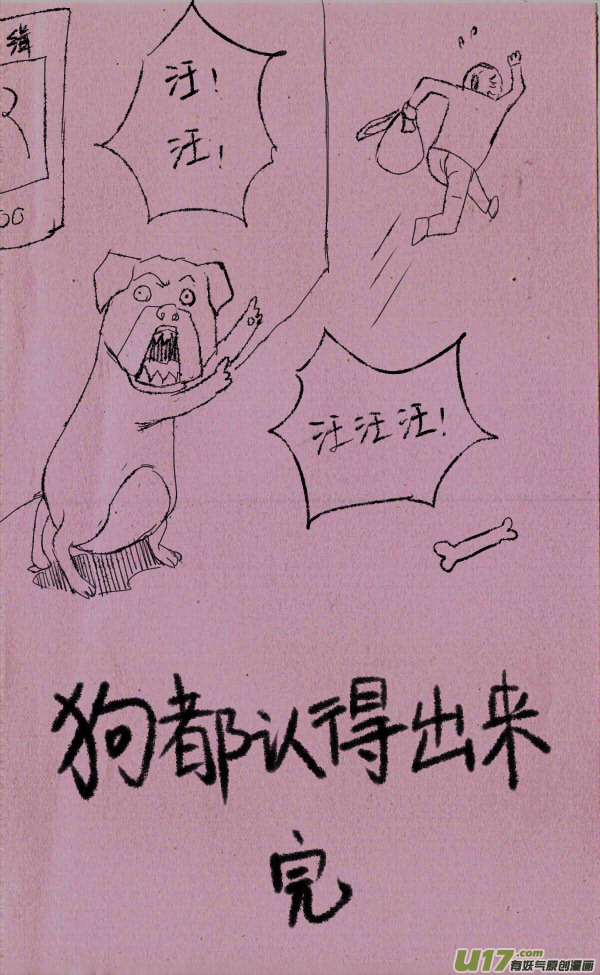 缉
00
汪!
汪!
汪汪汪!
狗都认得出来
完
U17.com
有妖气原创漫画